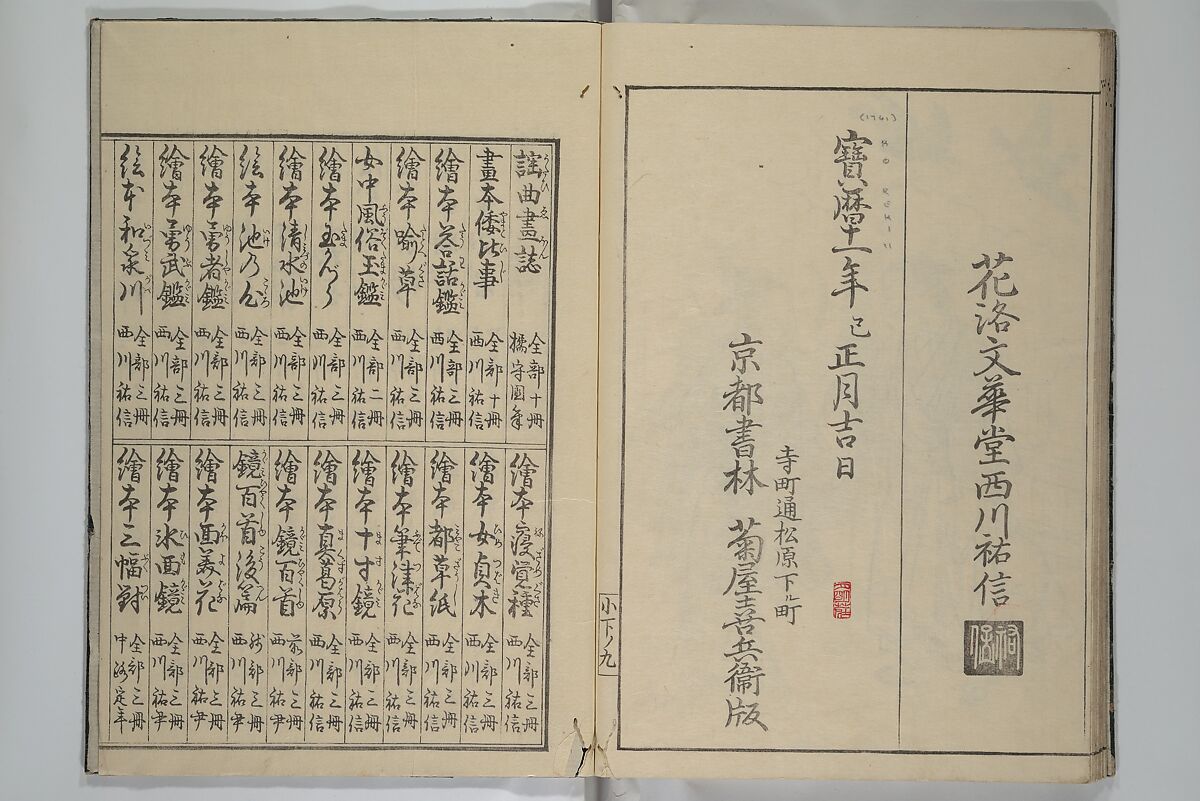 花洛文華堂西川祐信
祐信
(1761)
HOREKI 11
寶暦十一年 巳 正月吉日
寺町通松原下ル町
京都書林 菊屋喜兵衛版
小下ノ九
謡曲畫誌 全部十冊
畫本倭比事 全部十冊 西川祐信
繪本答話鑑 全部三冊 西川祐信
繪本喩草 全部三冊 西川祐信
女中風俗玉鑑 全部二冊 西川祐信
繪本玉かつら 全部三冊 西川祐信
繪本清水池 全部三冊 西川祐信
絵本池乃心 全部三冊 西川祐信
繪本勇者鑑 全部三冊 西川祐信
繪本勇武鑑 全部三冊 西川祐信
絵本和泉川 全部三冊 西川祐信
繪本寝覚種 全部三冊 西川祐信
繪本女貞木 全部三冊 西川祐信
繪本都草紙 全部三冊 西川祐信
繪本筆津花 全部三冊 西川祐信
繪本十寸鏡 全部三冊 西川祐信
繪本真葛原 全部三冊 西川祐信
繪本鏡百首 全部三冊 西川祐尹
鏡百首後篇 全部三冊 西川祐尹
繪本面美花 全部三冊 西川祐尹
繪本氷面鏡 全部三冊 西川祐尹
繪本三幅對 全部三冊